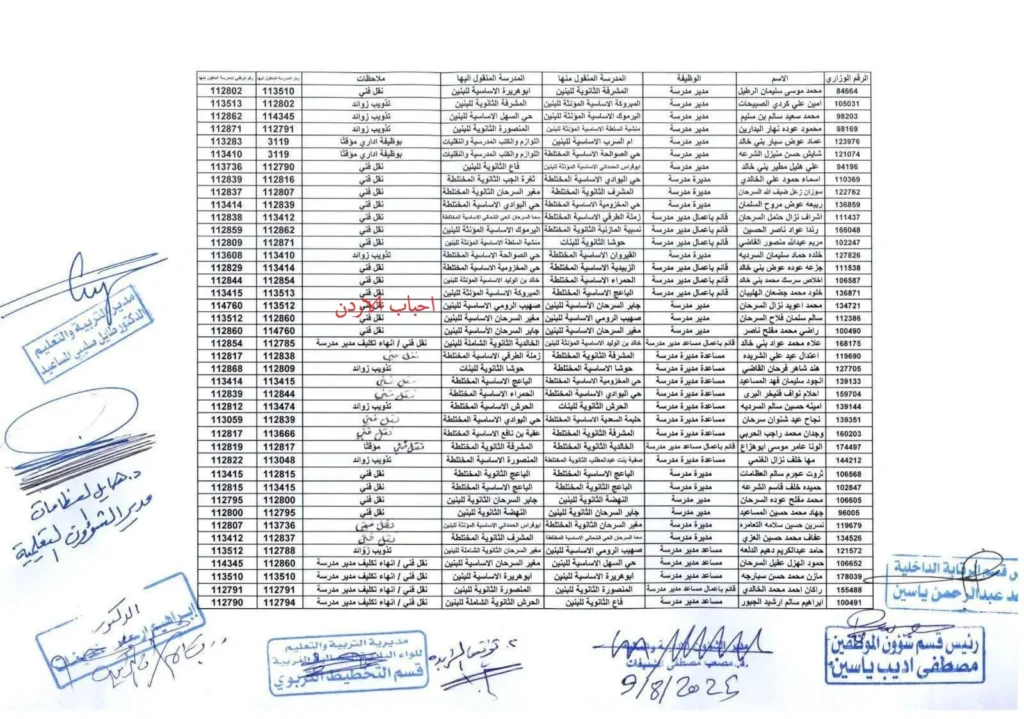 الرقم الوزاري الاسم الوظيفة المدرسة المنقول منها المدرسة المنقول اليها ملاحظات رمز المدرسة المنقول اليها رقم الوطني للمدرسة المنقول منها
84664 محمد موسى سليمان الرطيل مدير مدرسة المشرفة الثانوية للبنين ابوهريرة الاساسية للبنين نقل فني 113510 112802
105031 امين علي كردي الصبيحات مدير مدرسة المبروكة الاساسية المؤنثة للبنين المشرفة الثانوية للبنين تذويب زوائد 112802 113513
98203 محمد سعيد سالم بن سليم مدير مدرسة اليرموك الاساسية المؤنثة للبنين حي السهل الاساسية للبنين نقل فني 114345 112862
98169 محمود عوده نهار البدارين مدير مدرسة منشية السلطة الاساسية المؤنثة للبنين المنصورة الثانوية للبنين تذويب زوائد 112791 112871
123976 عماد عوض سيار بني خالد مدير مدرسة ام السرب الاساسية للبنين اللوازم والكتب المدرسية والنقليات بوظيفة اداري مؤقتا 3119 113283
121074 شايش حسن منيزل الشرعه مدير مدرسة حي الصوالحة الاساسية المختلطة اللوازم والكتب المدرسية والنقليات بوظيفة اداري مؤقتا 3119 113410
94196 علي هليل مطير بني خالد مدير مدرسة ابوفراس الحمداني الاساسية المؤنثة للبنين فاع الثانوية للبنين نقل فني 112790 113736
110369 اسماء حمود علي الخالدي مديرة مدرسة حي البوادي الاساسية المختلطة ثغرة الجب الثانوية المختلطة نقل فني 112816 112839
122762 سوزان زعل ضيف الله السرحان مديرة مدرسة المشرف الثانوية المختلطة مغير السرحان الثانوية المختلطة نقل فني 112807 112837
136859 ربيعه عوض مروح السلمان مديرة مدرسة حي المخزومية الاساسية المختلطة حي البوادي الاساسية المختلطة نقل فني 112839 113414
111437 اشراف نزال حتمل السرحان قائم باعمال مدير مدرسة زملة الطرقي الاساسية المختلطة سما السرحان الحي الشمالي الاساسية المختلطة نقل فني 113412 112838
166048 رندا عواد ناصر الحسين قائم باعمال مدير مدرسة نسيبة المازنية الثانوية المختلطة اليرموك الاساسية المؤنثة للبنين نقل فني 112862 112859
102247 مريم عبدالله منصور القاضي مديرة مدرسة حوشا الثانوية للبنات منشية السلطة الاساسية المؤنثة للبنين نقل فني 112871 112809
127826 خلده حماد سليمان السرديه مديرة مدرسة القيروان الاساسية المختلطة حي الصوالحة الاساسية المختلطة تذويب زوائد 113410 113608
111538 جزعه عوده بني خالد قائم باعمال مدير مدرسة الزبيدية الاساسية المختلطة حي المخزومية الاساسية المختلطة نقل فني 113414 112829
106587 اخلاص سرسك محمد بني خالد قائم باعمال مدير مدرسة الحمراء الاساسية المختلطة خالد بن الوليد الاساسية المؤنثة للبنين نقل فني 112854 112844
136871 خلود محمد جضعان الهليبان قائم باعمال مدير مدرسة الباعج الاساسية المختلطة المبروكة الاساسية المؤنثة للبنين نقل فني 113513 113415
134721 محمد اعويد نزال السرحان مدير مدرسة جابر السرحان الأساسية للبنين صهيب الرومي الاساسية للبنين نقل فني 113512 114760
احباب الاردن
112386 سالم سلمان فلاح السرحان مدير مدرسة صهيب الرومي الاساسية للبنين مغير السرحان الاساسية للبنين نقل فني 112860 113512
100490 راضي محمد مفلح ناصر مدير مدرسة مغير السرحان الاساسية للبنين جابر السرحان الأساسية للبنين نقل فني 114760 112860
168175 علاء محمد عواد بني خالد قائم باعمال مساعد مدير مدرسة خالد بن الوليد الاساسية المؤنثة للبنين الخالدية الثانوية الشاملة للبنين نقل فني / انهاء تكليف مدير مدرسة 112785 112854
119690 اعتدال عيد علي الشريده مساعدة مديرة مدرسة حوشا الاساسية المختلطة زملة الطرقي الاساسية المختلطة نقل فني 112838 112817
127705 هند شاهر فرحان القاضي مساعدة مديرة مدرسة حوشا الاساسية المختلطة حوشا الثانوية للبنات تذويب زوائد 112809 112868
139133 الجود سليمان فهد المساعيد مساعدة مديرة مدرسة حي المخزومية الاساسية المختلطة الباعج الاساسية المختلطة نقل فني 113415 113414
159704 احلام نواف فنيخر البري مساعدة مديرة مدرسة حي البوادي الاساسية المختلطة الحمراء الاساسية المختلطة نقل فني 112844 112839
139144 امينه حسين سالم السرديه مساعدة مديرة مدرسة الحرش الثانوية للبنات الحرش الاساسية المختلطة تذويب زوائد 113474 112812
139351 نجاح عيد شنوان سرحان مساعدة مديرة مدرسة حليمة السعدية الاساسية المختلطة حي البوادي الاساسية المختلطة نقل فني 112839 113059
160203 وجدان محمد راجب الحربي مساعدة مديرة مدرسة المشرفة الثانوية المختلطة عقبة بن نافع الاساسية المختلطة نقل فني 113666 112817
174497 الونا عامر موسى ابوهزاع قائم باعمال مساعد مدير مدرسة الخالدية الثانوية المختلطة المشرفة الثانوية المختلطة نقل فني مؤقتا 112817 112819
144212 مها خلف نزال الغنمي مساعدة مديرة مدرسة صفية بنت عبدالمطلب الثانوية المختلطة المنصورة الاساسية المختلطة تذويب زوائد 113048 112822
106568 ثروت عجرم سالم العظامات مديرة مدرسة الباعج الثانوية المختلطة الباعج الاساسية المختلطة نقل فني 112815 113415
102847 حميده خلف قاسم الشرعه مديرة مدرسة الباعج الاساسية المختلطة الباعج الثانوية المختلطة نقل فني 113415 112815
106605 محمد مفلح عوده السرحان مدير مدرسة النهضة الثانوية للبنين جابر السرحان الثانوية للبنين نقل فني 112800 112795
96005 جهاد محمد حسين المساعيد مدير مدرسة جابر السرحان الثانوية للبنين النهضة الثانوية للبنين نقل فني 112795 112800
119679 نسرين حسين سلامه التعامره مديرة مدرسة مغير السرحان الثانوية المختلطة ابوفراس الحمداني الاساسية المؤنثة للبنين نقل فني 113736 112807
134526 عفاف محمد حسين العزي مديرة مدرسة سما السرحان الحي الشمالي الاساسية المختلطة المشرف الثانوية المختلطة نقل فني 112837 113412
121572 حامد عبدالكريم دهيم الدلعه مساعد مدير مدرسة صهيب الرومي الاساسية للبنين مغير السرحان الثانوية الشاملة للبنين تذويب زوائد 112788 113512
106652 حمود الهزل عقيل السرحان مساعد مدير مدرسة حي السهل الاساسية للبنين مغير السرحان الاساسية للبنين نقل فني / انهاء تكليف مدير مدرسة 112860 114345
178039 مازن محمد حسن سيارجه مساعد مدير مدرسة ابوهريرة الاساسية للبنين ابوهريرة الاساسية للبنين نقل فني / انهاء تكليف مدير مدرسة 113510 113510
155488 راكان احمد محمد الخالدي قائم باعمال مساعد مدير مدرسة المنصورة الثانوية للبنين المنصورة الثانوية للبنين نقل فني / انهاء تكليف مدير مدرسة 112791 112791
100491 ابراهيم سالم ارشيد الجبور مساعد مدير مدرسة فاع الثانوية للبنين الحرش الثانوية الشاملة للبنين نقل فني / انهاء تكليف مدير مدرسة 112794 112790
مدير التربية والتعليم
الدكتور هايل صليبي المساعيد
د. هايل العظامات
مدير الشؤون التعليمية
قسم الرقابة الداخلية
عبدالرحمن ياسين
رئيس قسم شؤون الموظفين
مصطفى اديب ياسين
د. مصعب مصطفى الشيفات
9/8/2025
مديرية التربية والتعليم
قسم التخطيط التربوي
الدكتور